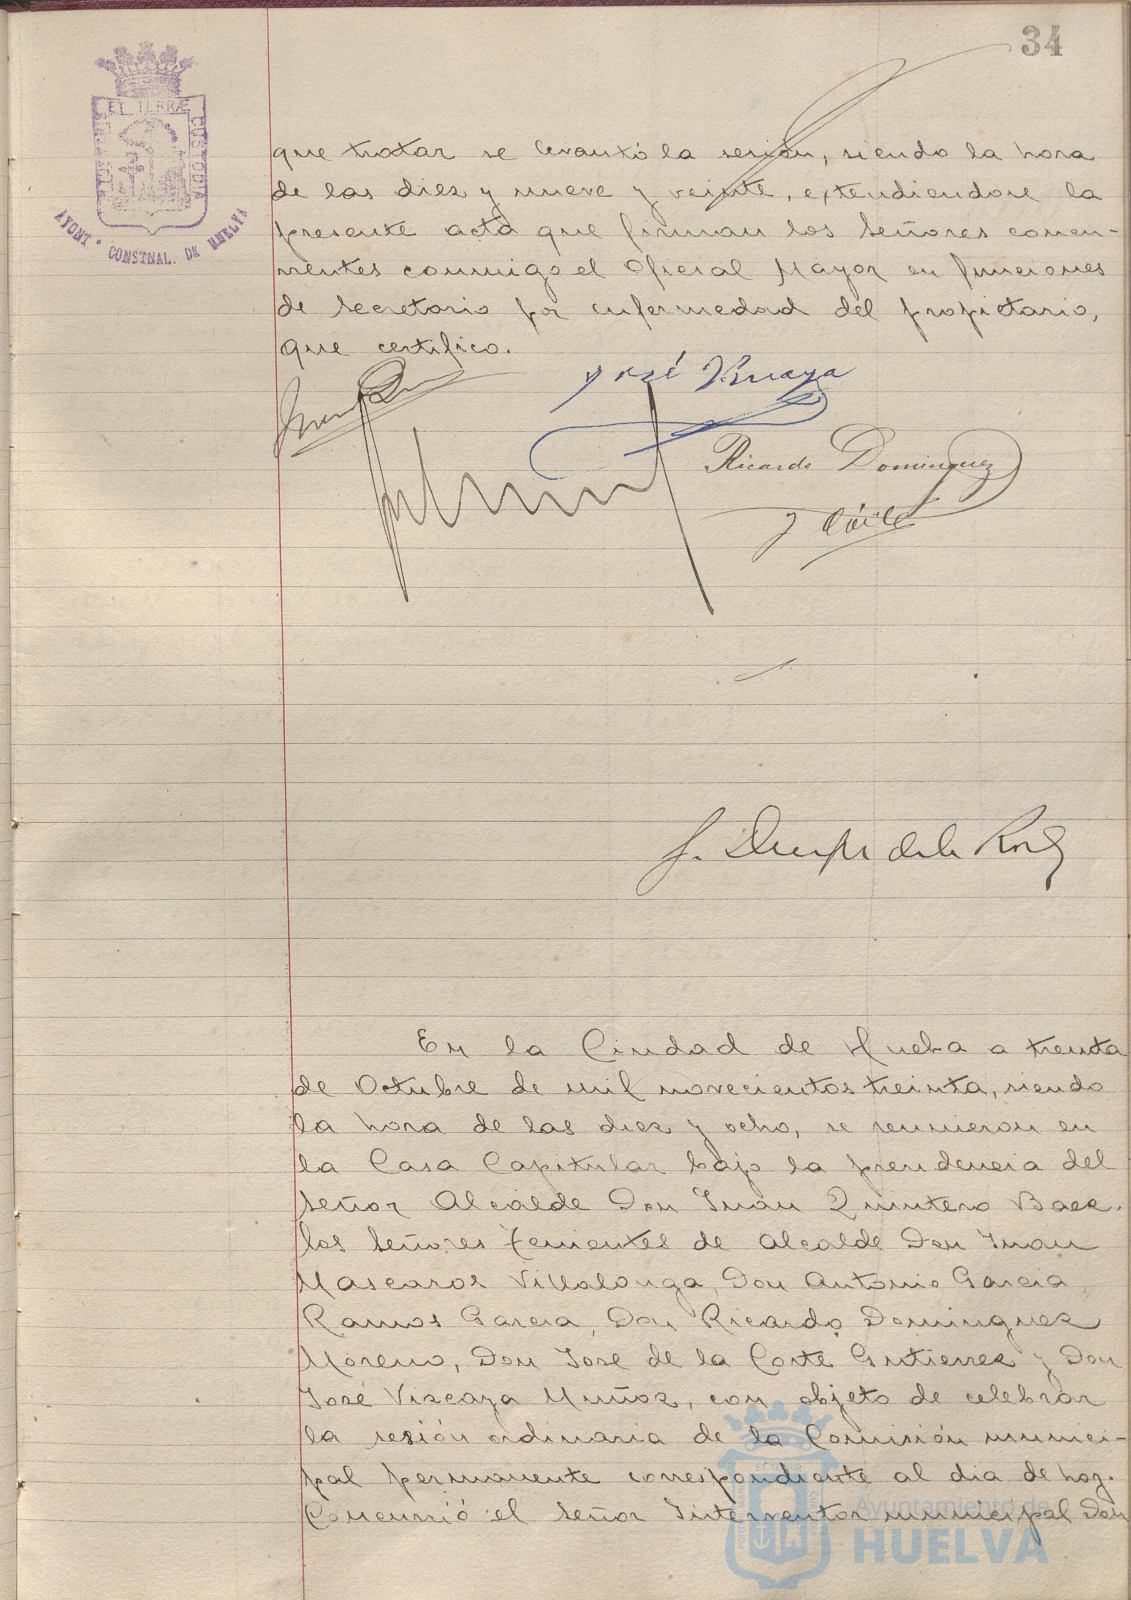 34
EL TERRÆ
CUSTODIA
AYUNT. CONSTNAL. DE HUELVA
que tratar se levantó la sesión, siendo la hora
de las diez y nueve y veinte, extendiendose la
presente acta que firman los Señores concu-
rrentes conmigo el Oficial Mayor en funciones
de Secretario por enfermedad del propietario,
que certifico.
José Vizcaya
Ricardo Dominguez
de la
En la Ciudad de Huelva a treinta
de Octubre de mil novecientos treinta, siendo
la hora de las diez y ocho, se reunieron en
la Casa Capitular bajo la presidencia del
Señor Alcalde Don Juan Quintero Baez.
los Señores Tenientes de Alcalde Don Juan
Mascaros Villalonga, Don Antonio Garcia
Ramos Garcia, Don Ricardo Dominguez
Moreno, Don Jose de la Corte Gutierrez y Don
José Vizcaya Muñoz, con objeto de celebrar
la sesión ordinaria de la Comisión munici-
pal permanente correspondiente al dia de hoy.
Concurrió el Señor Interventor municipal Don
Ayuntamiento de
HUELVA